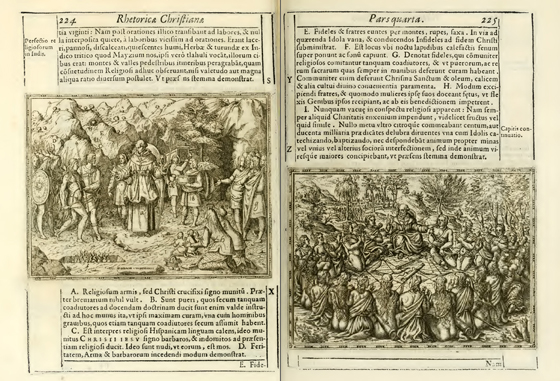 224 Rhetoricæ Christianæ
tia viginti: Nam post orationes istico transibunt ad labores, & nul
Perfectio re
ligiosorum
in India.
la interposita quiete, à laboribus vicissim ad orationes. Erant lace-
ri, pannosi, discalceati, quiescentes humi, Herbæ & turundæ ex In-
dico tritico quod Mayzium nos, ipsi verò tlahuli vocāt, illorum ci
bus erat: montes & valles pedestribus itineribus peragrabāt, quam
cōsuetudinem Religiosi adhuc obseruant, nisi valetudo aut magna
aliqua ratio diuersum postulet. Vt præsēns stemma demonstrat.
S
A. Religiosum armis, sed Christi crucifixi signo munitū. Præ-
X
ter breuiarium nihil vult. B. Sunt pueri, quos secum tanquam
coadiutores ad docendam doctrinam ducit sunt enim valde instru-
cti ad hoc munus ita, vt ipsi maximam curam, vna cum hominibus
grauibus, quos etiam tanquam coadiutores secum assumit habent.
C. Est interpres religiosi Hispanicam linguam calens, ideo mu-
nitus CHRISTI IESV signo barbaros, & indomitos ad præsen-
tiam religiosi ducit. Ideo sunt nudi, vt eorum, est mos. D. Feri-
tatem, Arma & barbarorum incedendi modum demonstrat.
E. Fide-
Pars quarta. 225
E. Fideles & fratres euntes per montes, rupes, saxa. In via ad
quærenda Idola vana, & conducendos Infideles ad fidem Christi
subministrat. F. Est locus vbi noctu lapidibus calefactis fenum
super ponunt ac somnū capiunt. G. Denotat fideles, qui cōmuniter
religiosos comitantur tanquam coadiutores, & vt puerorum, ac re
rum sacrarum quas semper in manibus deferunt curam habeant.
Y
Communiter enim deferunt Christina Sanctum & oleum, calicem
& alia cultui diuino conuenientia paramenta. H. Modum exci-
piendi fratres, & quomodo mulieres ipsę suos doceant fętus, vt Ile
xis Gembus ipsos recipiant, ac ab eis benedictionem impetrent.
I. Nunquam vacuę in conspectu religiosi apparent: Nam sem-
per aliquid Charitatis exenium impendunt, videlicet fructus vel
quid simile. Nullo metu vltro citroque commeabant centum, aut
Capitis con-
tinuatio.
ducenta milliaria prædicātes delubra diruentes vna cum Idolis ca-
techizando, baptizando, nec despondebāt animum propter minas
Z
vel vnius vel alterius sociorū interfectionem, sed inde animum vi-
resque maiores concipiebant, vt præsens stemma demonstrat.